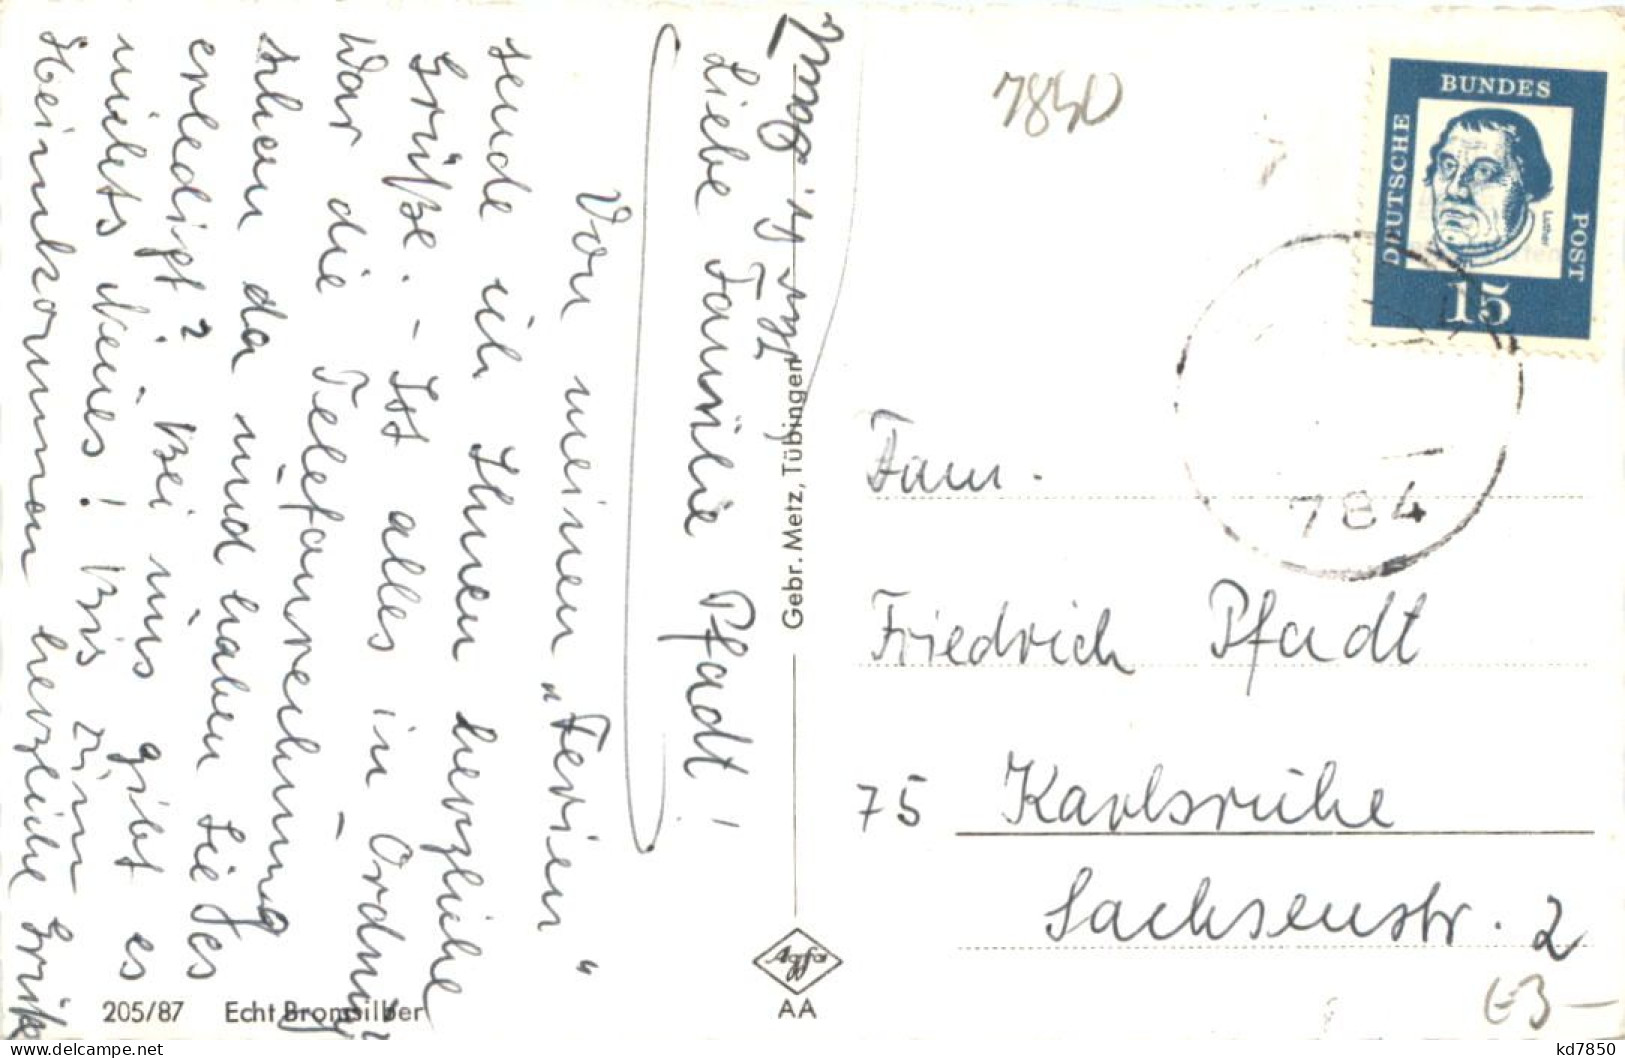 Liebe Familie Pfadt!
Von meinen „Ferien“
sende ich Ihnen herzliche
Grüße. - Ist alles in Ordnung?
War die Telefonrechnung
schon da und haben Sie es
erledigt? Bei uns gibt es
nichts Neues! Bis zum
Heimkommen herzliche Grüße
Ihre
7850
DEUTSCHE
BUNDES
POST
Luther
15
784
Fam.
Friedrich Pfadt
75 Karlsruhe
Sachsenstr. 2
Gebr. Metz, Tübingen
Agfa
AA
205/87 Echt Bromsilber
E3-
kd7850